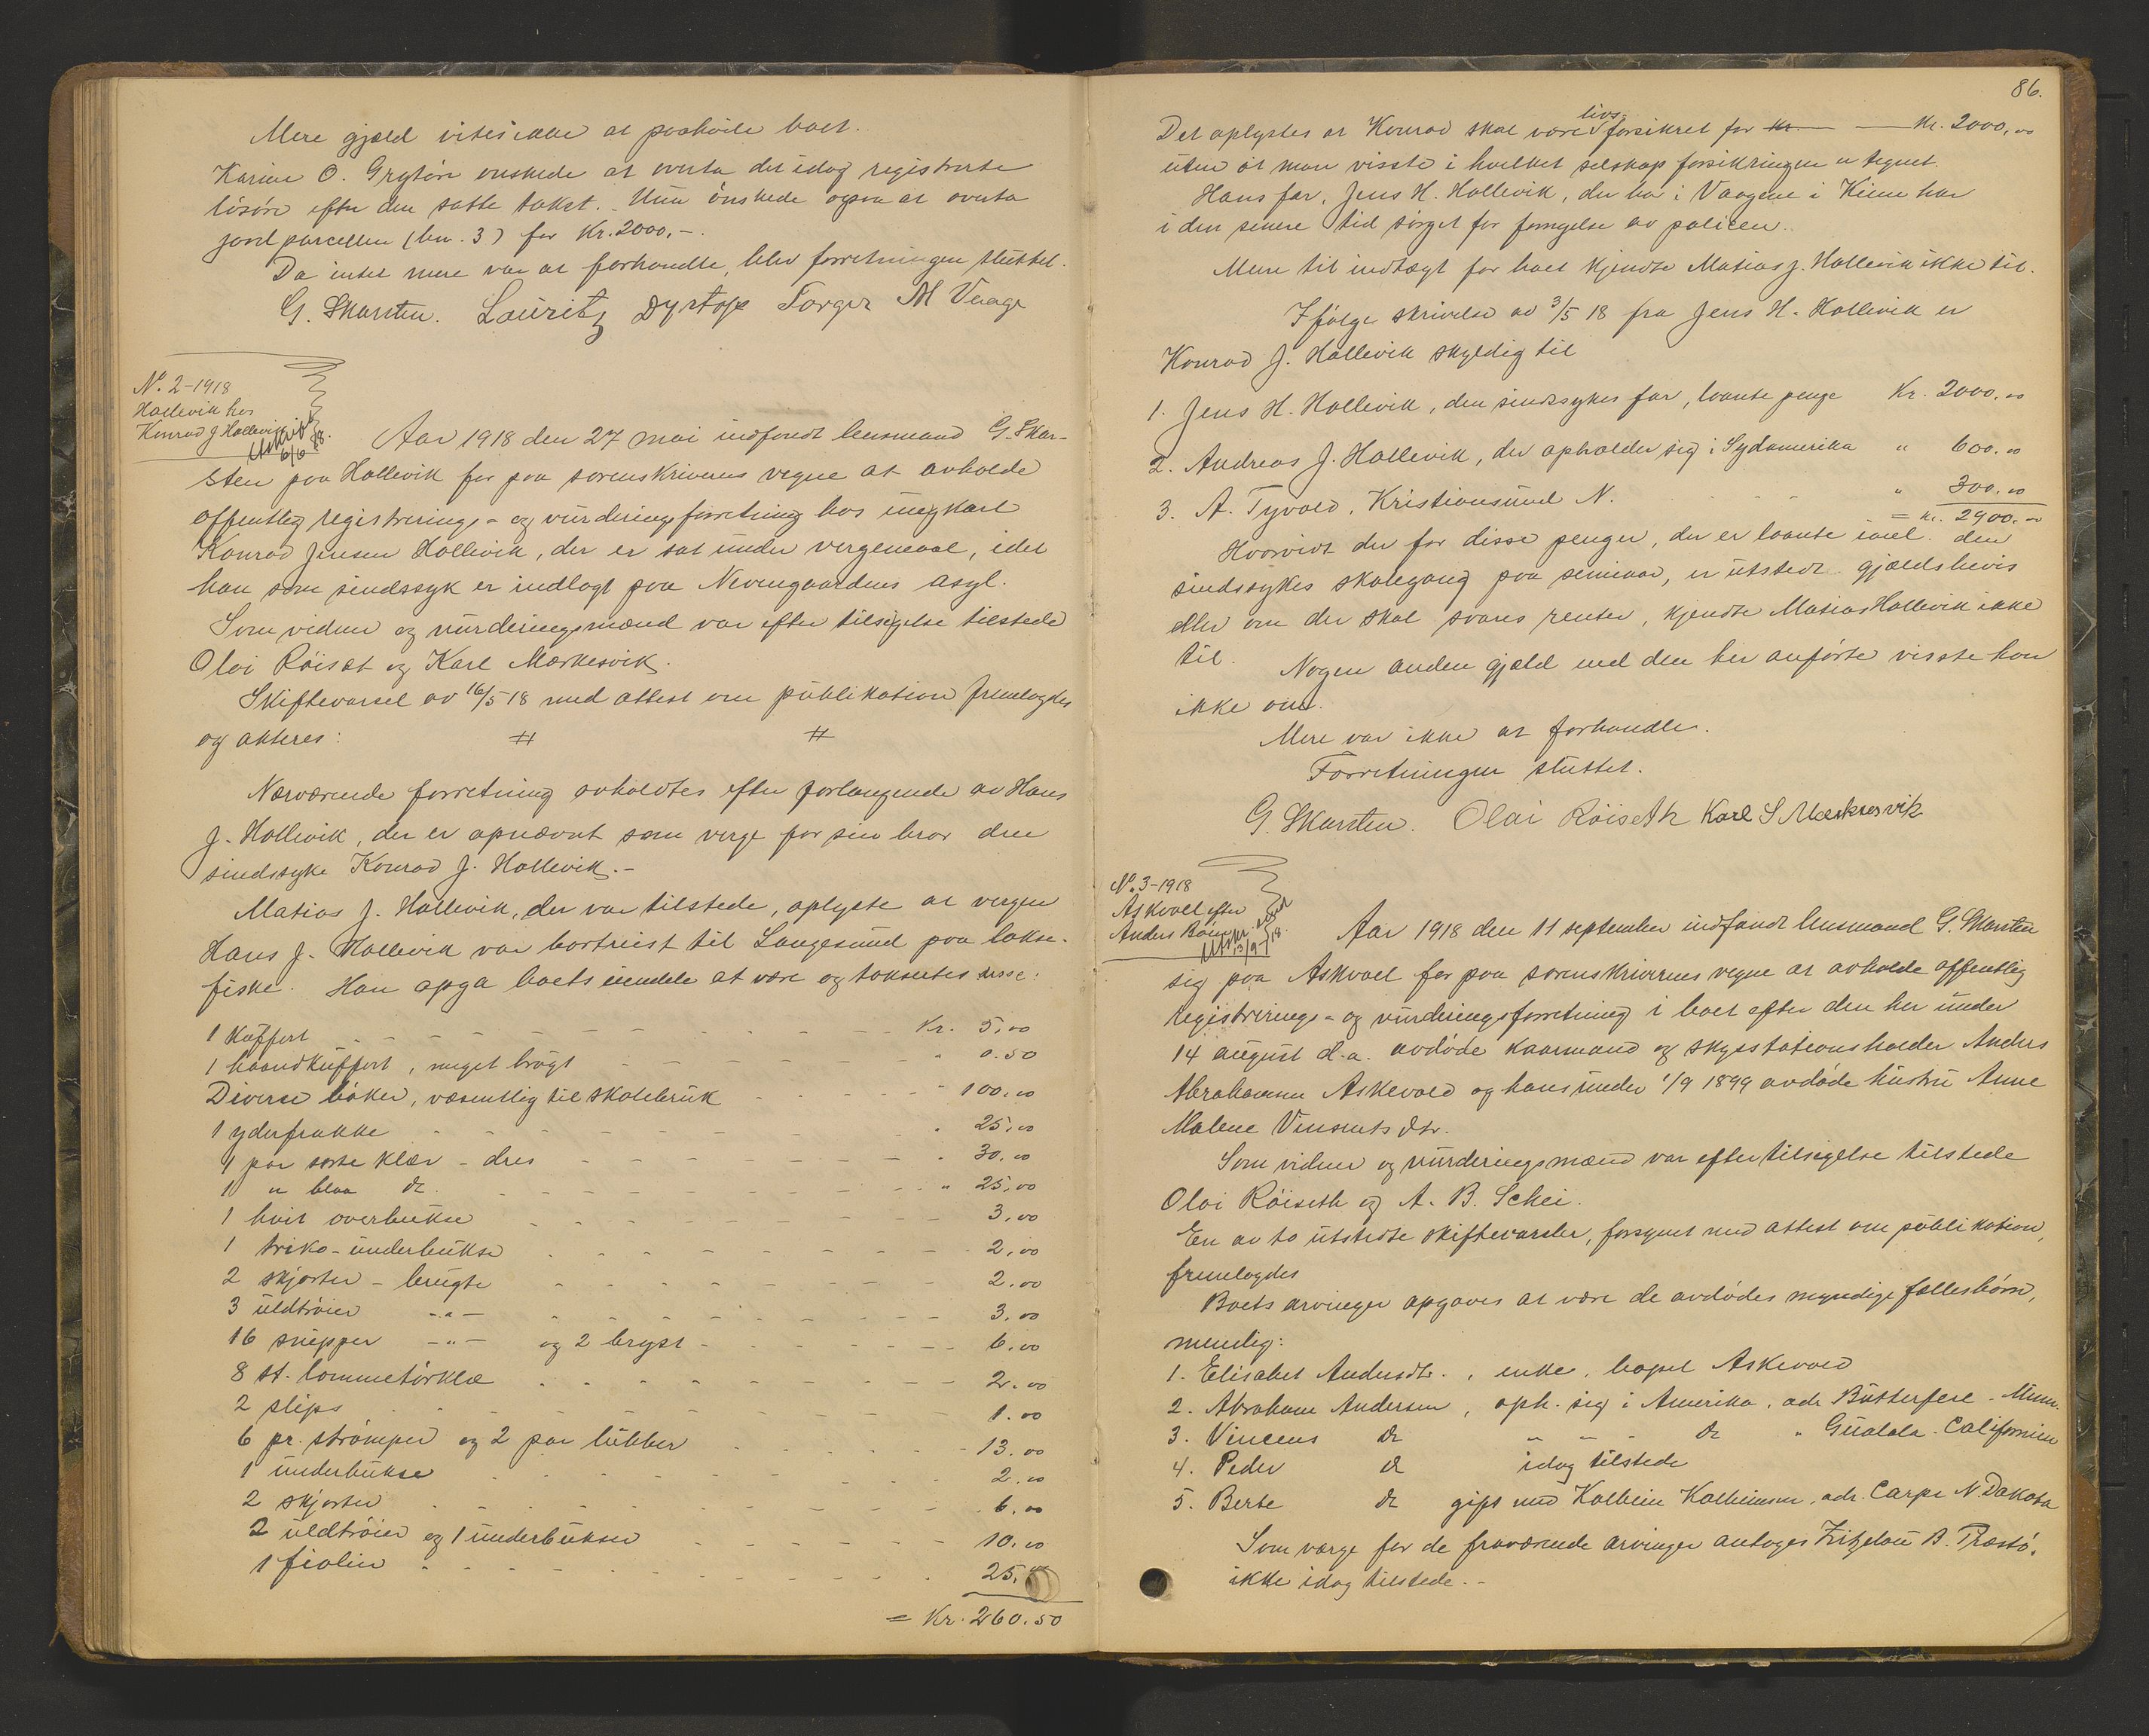 Mere gjæld vites ikke at paahvile boet.
Karine O. Grytøre ønskede at overta det idag registrerte
løsøre efter den satte takst. Hun ønskede ogsaa at overta
jordparcellen (bn. 3) for Kr. 2000,-.
Da intet mere var at forhandle, blev forretningen sluttet.
G. Skarsten. Lauritz Torger M Vaage
No. 2-1918
Hallevik hos
Konrad J Hallevik
Utskrift
6/6 18.
Aar 1918 den 27 mai indfandt lensmand G. Skar-
sten paa Hallevik for paa sorenskriverens vegne at avholde
offentlig registrerings- og vurderingsforretning hos ungkarl
Konrad Jensen Hallevik, der er sat under vergemaal, idet
han som sindssyk er indlagt paa Nevengaardens asyl.
Som vidner og vurderingsmænd var efter tilsigelse tilstede
Olai Røiset og Karl Mærkesvik.
Skiftevarsel av 16/5 18 med attest om publikation fremlagdes
og akteres: # #
Nærværende forretning avholdtes efter forlangende av Hans
J. Hallevik, der er opnævnt som verge for sin bror den
sindssyke Konrad J. Hallevik.-
Matias J. Hallevik, der var tilstede, oplyste at vergen
Hans J. Hallevik var bortreist til Langesund paa lakse-
fiske. Han opga boets eiendele at være og taksertes disse:
1 kuffert Kr. 5,00
1 haandkuffert, meget brugt " 0.50
Diverse bøker, væsentlig til skolebruk " 100,00
1 yderfrakke " 25,00
1 par sorte klær - dres " 30.00
1 " blaa do. " 25,00
1 hvit overbukse 3,00
1 triko-underbukse 2,00
2 skjorter - brugte 2.00
3 uldtrøier -"- 3.00
16 snipper -"- og 2 bryst 6.00
8 st. lommetørklæ 2.00
2 slips 1.00
6 pr. strømper og 2 par lubber 13.00
1 underbukse 2.00
2 skjorter 6.00
2 uldtrøier og 1 underbukse 10.00
1 fiolin 25.
= Kr. 260.50
86.
Det oplystes at Konrad skal være livsforsikret for Kr. 2000,00
uten at man visste i hvilket selskap forsikringen er tegnet.
Hans far, Jens H. Hallevik, der bor i Vaagene i Kinn har
i den senere tid sørget for fornyelse av policen.
Mere til indtægt for boet kjendte Matias J. Hallevik ikke til.
Ifølge skrivelse av 3/5 18 fra Jens H. Hallevik er
Konrad J. Hallevik skyldig til
1. Jens H. Hallevik, den sindssykes far, laante penge Kr. 2000.00
2. Andreas J. Hallevik, der opholder sig i Sydamerika " 600.00
3. A. Tyvold, Kristiansund N. " 300.00
= Kr. 2900.00
Hvorvidt der for disse penger, der er laante den
sindssykes skolegang paa seminar, er utstedt gjældsbevis
eller om der skal svares renter, kjendte Matias Hallevik ikke
til. Nogen anden gjæld end den her anførte visste han
ikke om.
Mere var ikke at forhandle.
Forretningen sluttet.
G. Skarsten. Olai Röiseth Karl S Mærkesvik
No. 3-1918
Askvoll efter
Anders
Utskr.
13/9-18.
Aar 1918 den 11 september indfandt lensmand G. Skarsten
sig paa Askvoll for paa sorenskriverens vegne at avholde offentlig
registrerings- og vurderingsforretning i boet efter den her under
14 august d.a. avdøde kaarmand og skysstationsholder Anders
Abrahamsen Askevold og hans under 1/9 1899 avdøde hustru Anne
Malene Vinsentsdtr.
Som vidner og vurderingsmænd var efter tilsigelse tilstede
Olai Röiseth og A. B. Schei.
En av to utstedte skiftevarsler, forsynet med attest om publikation,
fremlagdes
Boets arvinger opgaves at være de avdødes myndige fællesbørn,
nemlig:
1. Elisabet Andersdtr., enke, bopæl Askevold
2. Abraham Andersen, oph. sig i Amerika, adr Butterfeld - Minn.
3. Vincens do " " - do " Gualala - Californien
4. Peder do idag tilstede
5. Berte do gift med Kolbein Kolbeinsen, adr. Carpe N. Dakota
Som verge for de fraværende arvinger antoges B. Træstø.
ikke idag tilstede.-